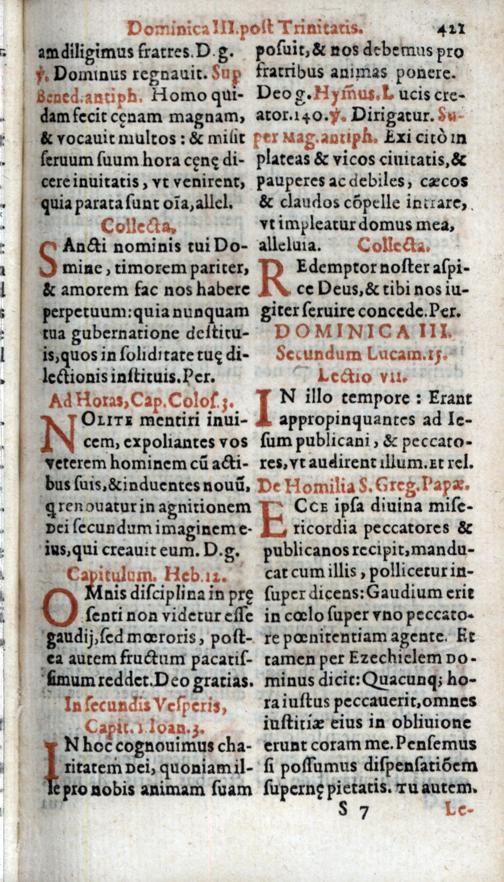 Dominica III. post Trinitatis. 421
am diligimus fratres. D.g.
℣. Dominus regnauit. Sup
Bened. antiph. Homo qui-
dam fecit cęnam magnam,
& vocauit multos : & misit
seruum suum hora cęnę di-
cere inuitatis, vt venirent,
quia parata sunt oīa, allel.
Collecta.
SAncti nominis tui Do-
mine, timorem pariter,
& amorem fac nos habere
perpetuum: quia nunquam
tua gubernatione destitu-
is, quos in soliditate tuę di-
lectionis instituis. Per.
Ad Horas, Cap. Colos. 3.
NOLITE mentiri inui-
cem, expoliantes vos
veterem hominem cū acti-
bus suis, & induentes nouū,
q renouatur in agnitionem
DEI secundum imaginem e-
ius, qui creauit eum. D.g.
Capitulum. Heb. 12.
OMnis disciplina in prę
senti non videtur esse
gaudij, sed mœroris, post-
ea autem fructum pacatis-
simum reddet. Deo gratias.
In secundis Vesperis,
Capit. 1. Ioan. 3.
IN hoc cognouimus cha-
ritatem DEI, quoniam il-
le pro nobis animam suam
posuit, & nos debemus pro
fratribus animas ponere.
Deo g. Hym̄us. L ucis cre-
ator. 140. ℣. Dirigatur. Su-
per Mag. antiph. Exi citò in
plateas & vicos ciuitatis, &
pauperes ac debiles, cæcos
& claudos cōpelle intrare,
vt impleatur domus mea,
alleluia. Collecta.
REdemptor noster aspi-
ce Deus, & tibi nos iu-
giter seruire concede. Per.
DOMINICA III.
Secundum Lucam. 15.
Lectio vii.
IN illo tempore : Erant
appropinquantes ad Ie-
sum publicani, & peccato-
res, vt audirent illum. Et rel.
De Homilia S. Greg. Papæ.
ECCE ipsa diuina mise-
ricordia peccatores &
publicanos recipit, mandu-
cat cum illis, pollicetur in-
super dicens: Gaudium erit
in cœlo super vno peccato-
re pœnitentiam agente. Et
tamen per Ezechielem DO-
minus dicit: Quacunq; ho-
ra iustus peccauerit, omnes
iustitiæ eius in obliuione
erunt coram me. Pensemus
si possumus dispensatiōem
supernę pietatis. TU autem.
S 7 Le-